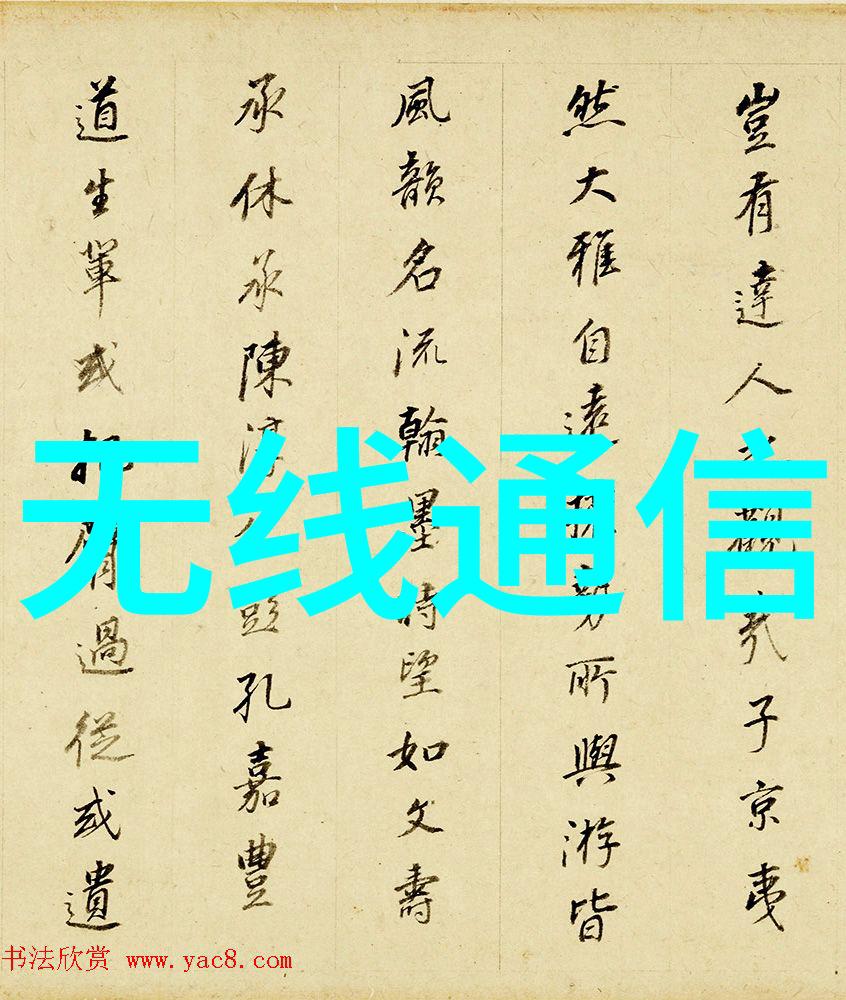 豈有達人觀哉子京夷
然大雅自遠所與游皆
風韻名流翰墨時望如文壽
承休承陳淳孔嘉豐
道生輩或過從或遺
无线通信
书法欣赏 www.yac8.com